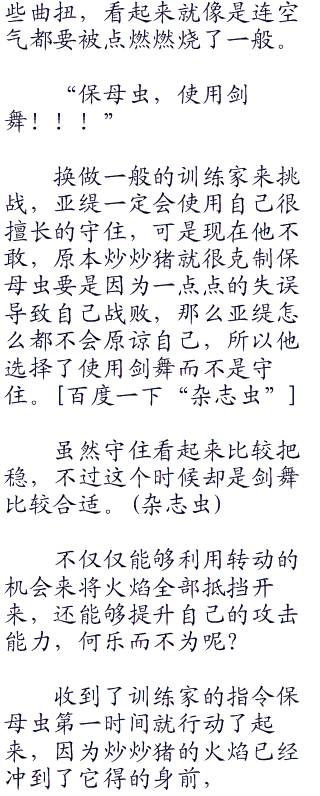 些曲扭，看起来就像是连空
气都要被点燃燃烧了一般。
“保母虫，使用剑
舞！！！”
换做一般的训练家来挑
战，亚缇一定会使用自己很
擅长的守住，可是现在他不
敢，原本炒炒猪就很克制保
母虫要是因为一点点的失误
导致自己战败，那么亚缇怎
么都不会原谅自己，所以他
选择了使用剑舞而不是守
住。[百度一下“杂志虫”]
虽然守住看起来比较把
稳，不过这个时候却是剑舞
比较合适。(杂志虫)
不仅仅能够利用转动的
机会来将火焰全部抵挡开
来，还能够提升自己的攻击
能力，何乐而不为呢？
收到了训练家的指令保
母虫第一时间就行动了起
来，因为炒炒猪的火焰已经
冲到了它得的身前，